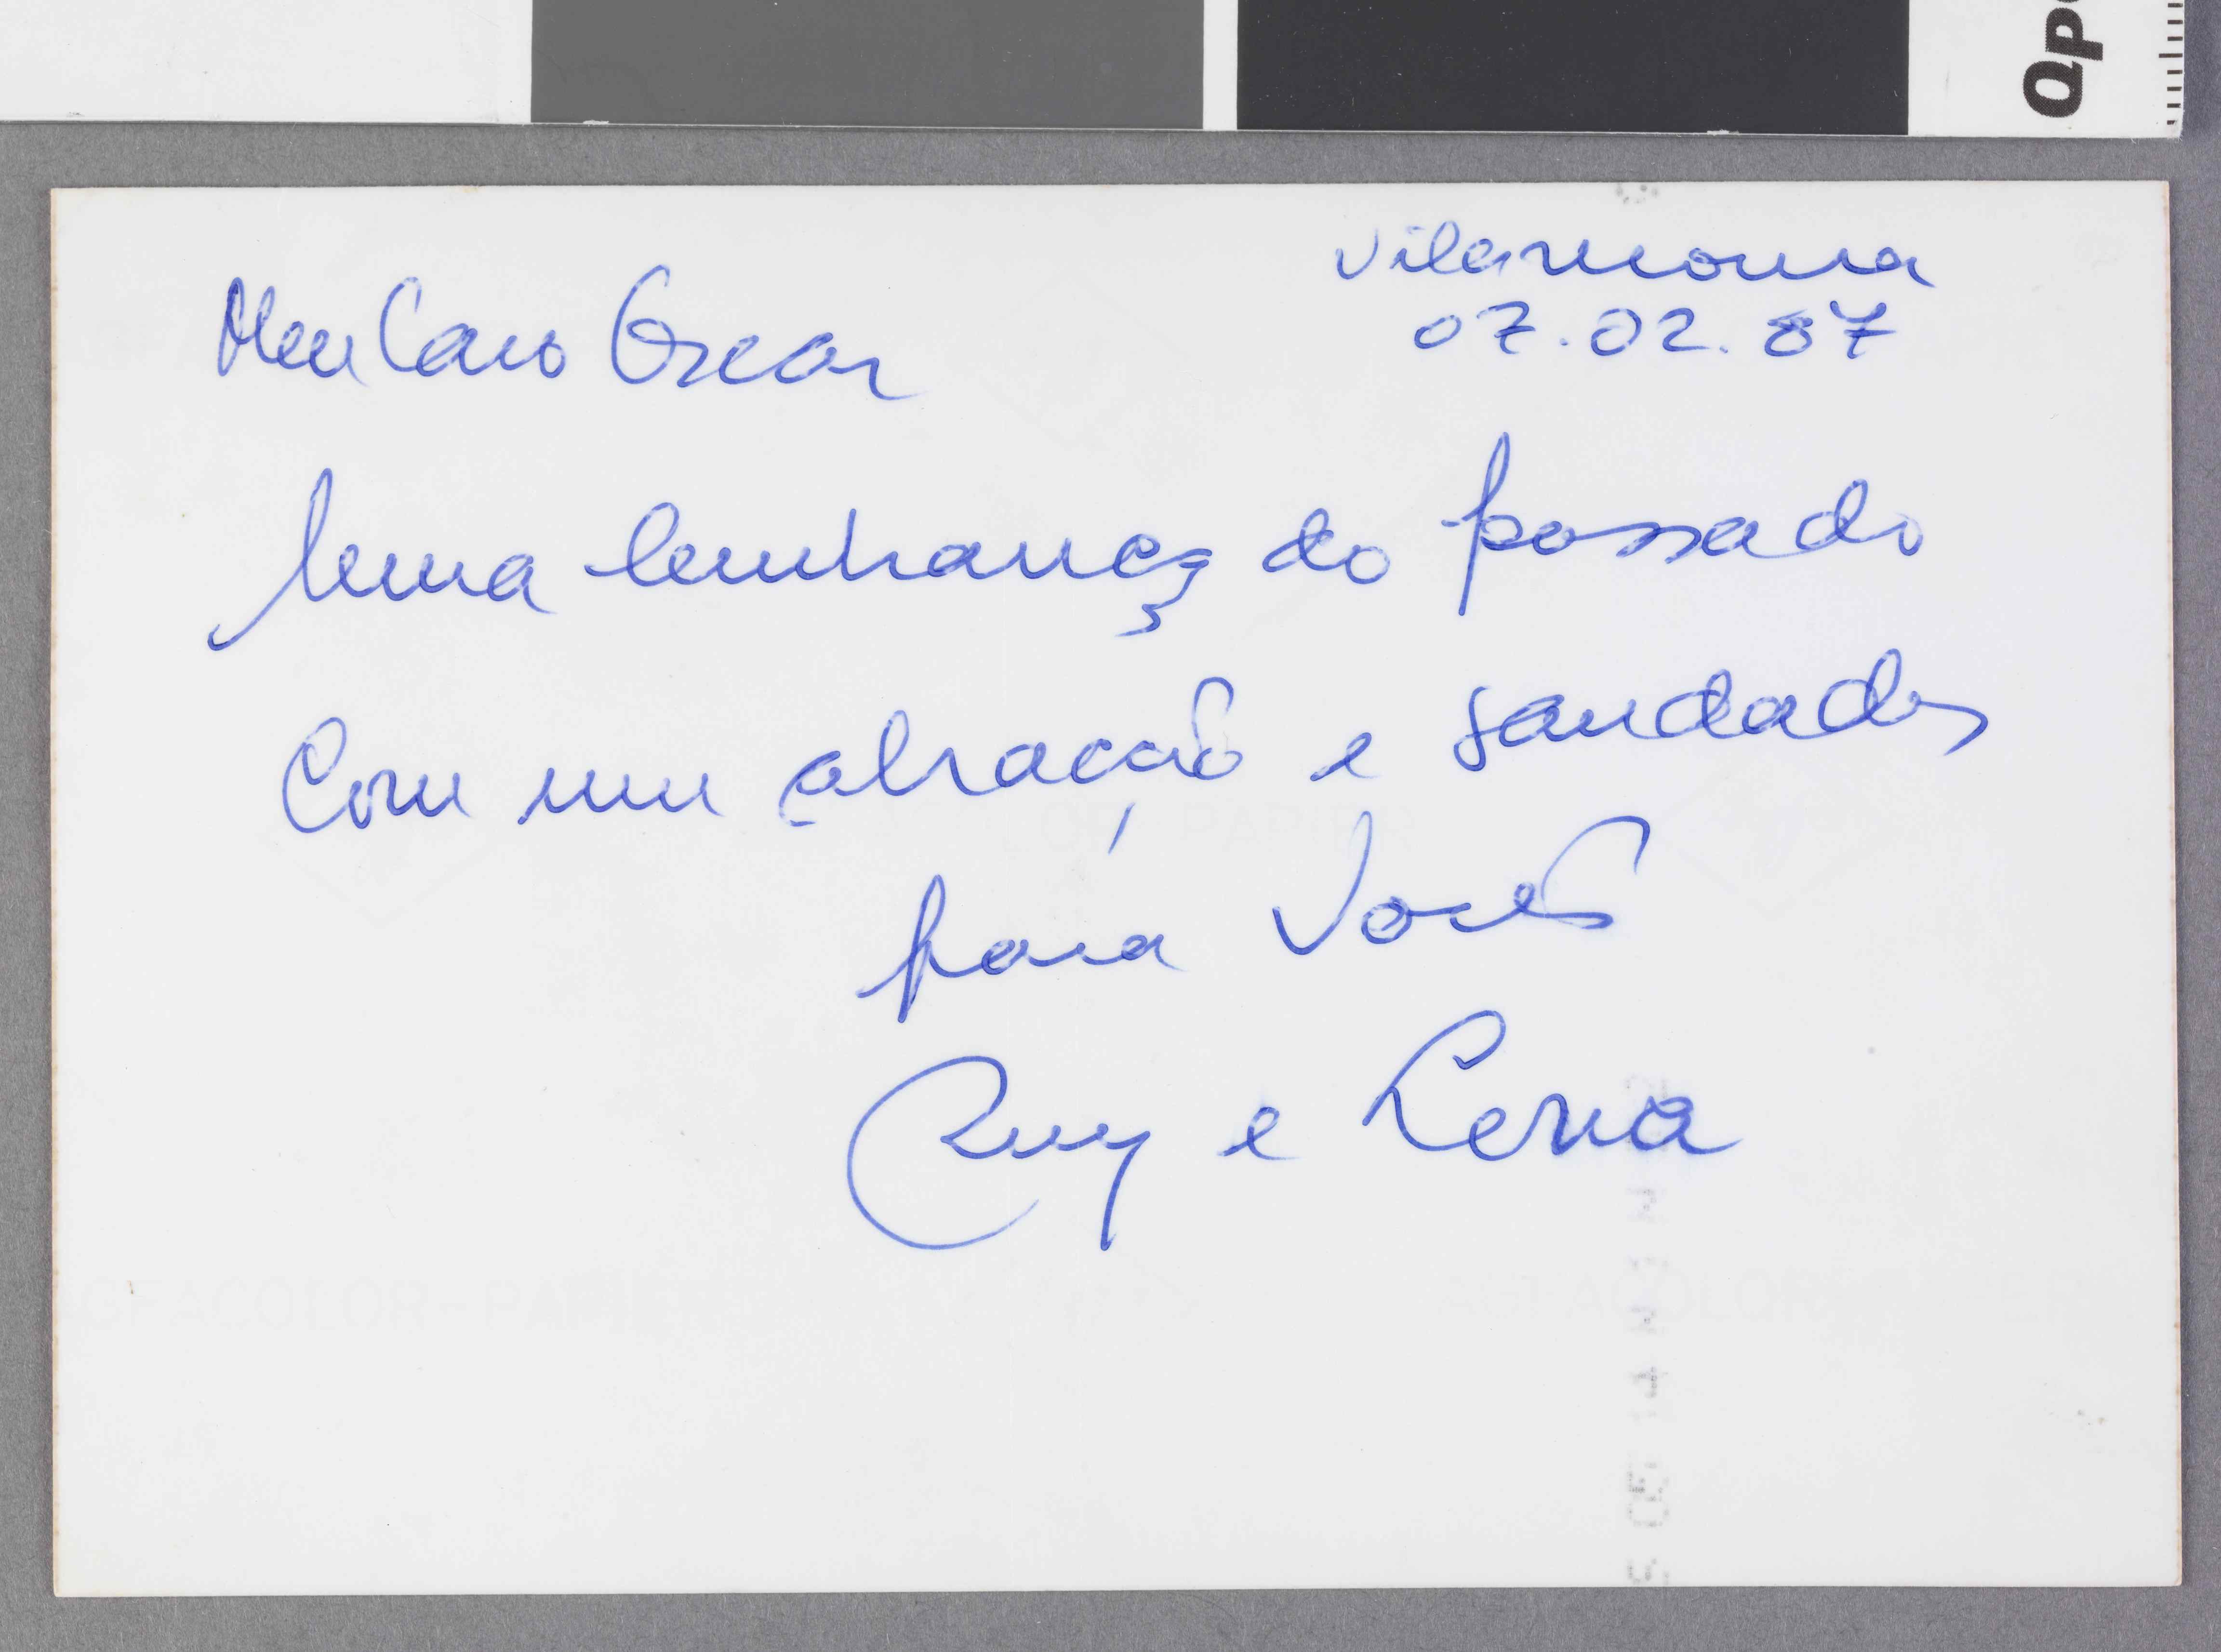 Vilamoura
07.02.87
Meu Caro Oscar
Uma lembrança do passado
Com um abração e saudades
para Vocês
Ruy e Lena
AGFACOLOR-PAPIER